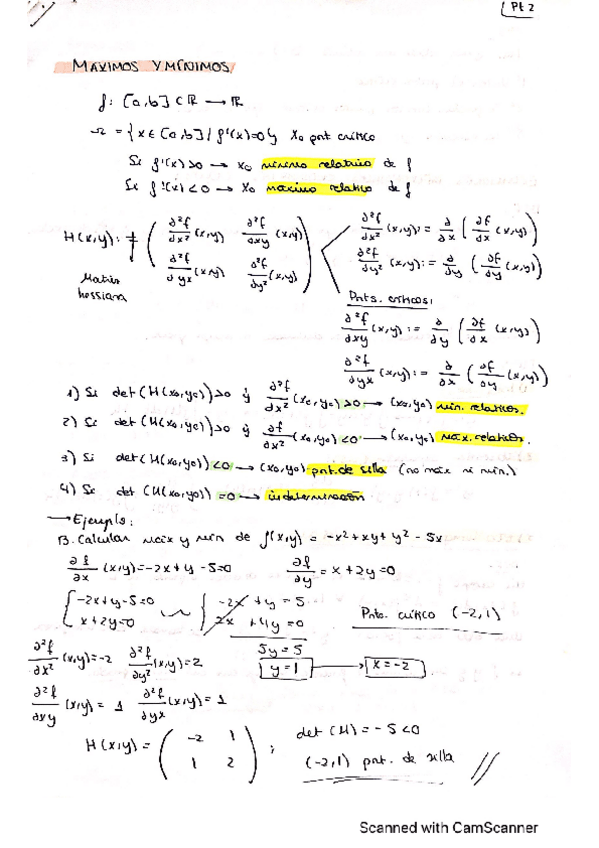 Pt 2
MAXIMOS Y MÍNIMOS
f: [a,b] ⊂ ℝ → ℝ
= {x ∈ [a,b] / f'(x)=0} x₀ pnt crítico
Si f''(x)>0 → x₀ mínimo relativo de f
Si f''(x)<0 → x₀ máximo relativo de f
H(x,y): = ( ∂²f/∂x² (x,y) ∂²f/∂xy (x,y)
∂²f/∂yx (x,y) ∂²f/∂y² (x,y) )
Matriz hessiana
∂²f/∂x² (x,y):= ∂/∂x (∂f/∂x (x,y))
∂²f/∂y² (x,y):= ∂/∂y (∂f/∂y (x,y))
Pnts. críticos:
∂²f/∂xy (x,y):= ∂/∂y (∂f/∂x (x,y))
∂²f/∂yx (x,y):= ∂/∂x (∂f/∂y (x,y))
1) Si det(H(x₀,y₀))>0 y ∂²f/∂x² (x₀,y₀)>0 → (x₀,y₀) mín. relativos.
2) Si det(H(x₀,y₀))>0 y ∂f/∂x² (x₀,y₀)<0 → (x₀,y₀) máx. relativos.
3) Si det(H(x₀,y₀))<0 → (x₀,y₀) pnt. de silla (no máx ni mín.)
4) Si det(H(x₀,y₀))=0 → indeterminación
→ Ejemplo:
13. Calcular máx y mín de f(x,y) = -x²+xy+y²-5x
∂f/∂x (x,y)=-2x+y-5=0 ∂f/∂y = x+2y=0
{ -2x+y-5=0 { -2x+y=5
x+2y=0 2x+4y=0
Pnto. crítico (-2,1)
5y=5
y=1 → x=-2
∂²f/∂x² (x,y)=-2 ∂²f/∂y² (x,y)=2
∂²f/∂xy (x,y)=1 ∂²f/∂yx (x,y)=1
H(x,y) = ( -2 1
1 2 ) ;
det(H)=-5<0
(-2,1) pnt. de silla //
Scanned with CamScanner